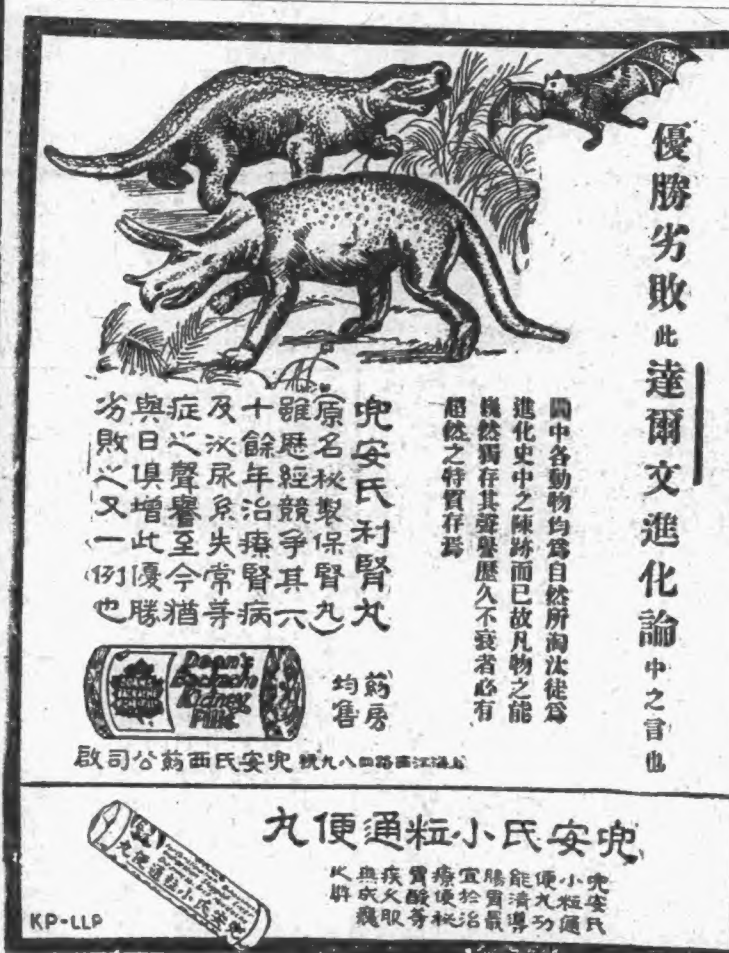 優勝劣敗此達爾文進化論中之言也
圖中各動物均爲自然所淘汰徒爲
進化史中之陳跡而已故凡物之能
巍然獨存其聲譽歷久不衰者必有
超然之特質存焉
兜安氏利腎丸
(原名秘製保腎丸)
雖歷經競爭其六
十餘年治療腎病
及泌尿系失常等
症之聲譽至今猶
與日俱增此優勝
劣敗之又一例也
葯房
均售
Doan's
Backache
Kidney
Pills
上海江西路四八九號兜安氏西葯公司啟
兜安氏小粒通便丸
兜安氏
小粒通
便丸功
能淸導
腸胃最
宜於治
療便秘
胃酸等
疾久服
無成癮
之弊
兜安氏小粒通便丸
KP-LLP